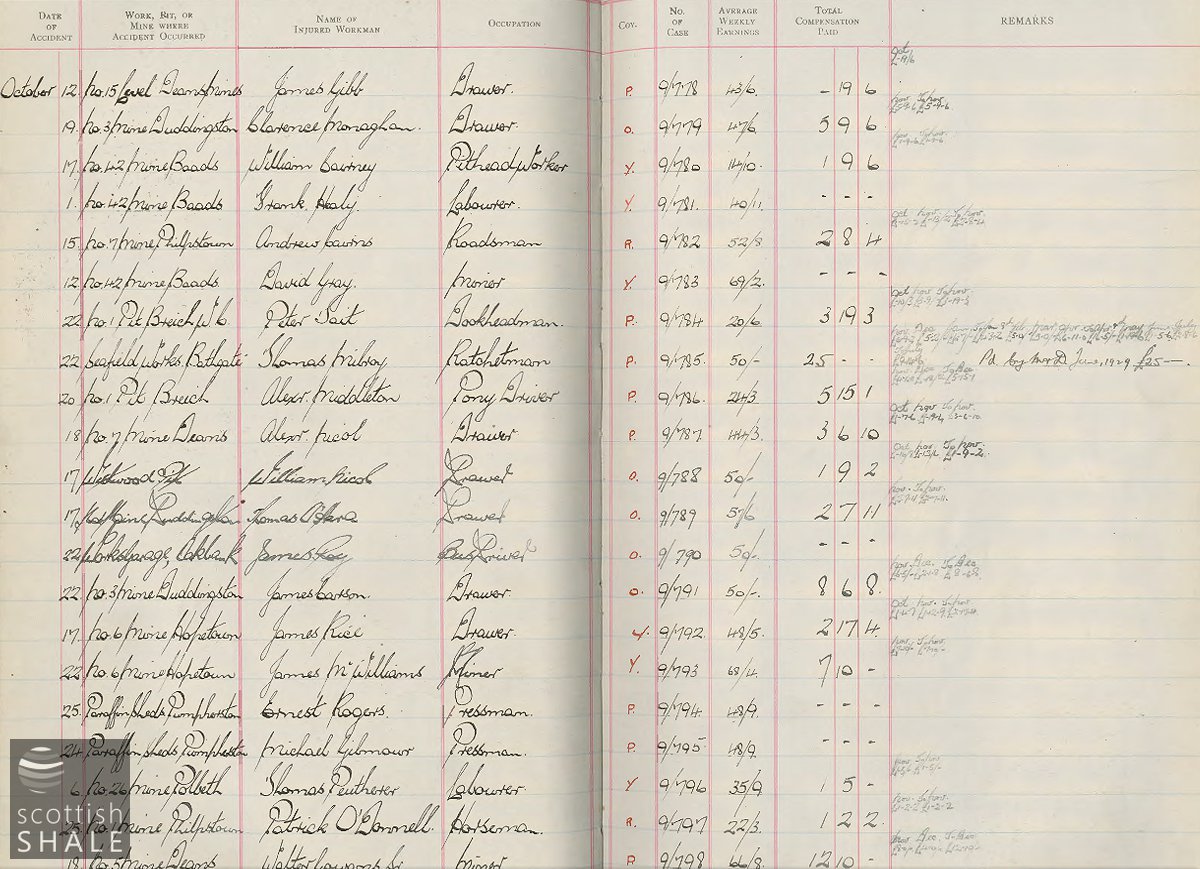 DATE OF ACCIDENT WORK, PIT, OR MINE WHERE ACCIDENT OCCURRED NAME OF INJURED WORKMAN OCCUPATION COY. NO. OF CASE AVERAGE WEEKLY EARNINGS TOTAL COMPENSATION PAID REMARKS
October 12 No. 15 Level Deans Mines James Gibb Drawer. P. 9/778 43/6 - 19 6
19. No. 3 Mine Duddingston Clarence Monaghan. Drawer. O. 9/779 47/6 5 9 6
17 No. 42 Mine Baads William Cairney Pithead Worker Y. 9/780 1 9 6
1. No. 42 Mine Baads Frank Healy. Labourer. Y. 9/781. 40/11. - - -
15 No. 7 Mine Philpstown Andrew Cairns Roadsman R. 9/782 52/8 2 8 4
12 No. 42 Mine Baads David Gray. Miner Y. 9/783 69/2. - - -
22 No. 1 Pit Breich W.C. Peter Tait Lookheadman. P. 9/784 20/6 3 19 3
22 Seafield Works. Bathgate Thomas Milroy Ratchetman P. 9/785. 50/- 25 - - Pd. by June, 1929 £25 -
20 No. 1 Pit Breich Alexr. Middleton Pony Driver P. 9/786. 24/3. 5 15 1
18 No. 7 Mine Deans Alexr. Nicol Drawer P. 9/787. 44/3. 3 6 10
17 Westwood Pit William Nicol Drawer O. 9/788 50/- 1 9 2
17 Mine Duddingston Thomas O'Hara Drawer O. 9/789 57/6 2 7 11
22 Works Garage, Oakbank James Roy Bus Driver O. 9/790 50/-. - - -
22. No. 3 Mine Duddingston James Carson. Drawer O. 9/791 50/-. 8 6 8.
17. No. 6 Mine Hopetown James Rice Drawer. Y. 9/792. 48/5. 2 17 4
22 No. 6 Mine Hopetown James McWilliams Miner Y. 9/793 68/4. 7 10 -
25. Paraffin Sheds Pumpherston Ernest Rogers. Pressman. P. 9/794 48/9. - - -
24. Paraffin Sheds Pumpherston Michael Gilmour Pressman. P. 9/795 48/9. - - -
6 No. 26 Mine Polbeth Thomas Peutherer Labourer. Y 9/796 35/9. 1 5 -
25 No. 1 Mine Philpstown Patrick O'Donnell. Horseman. R. 9/797 22/3. 1 2 2
18 No. 5 Mine Deans Walter Miner P. 9/798 66/8. 12 10 -
scottish
SHALE